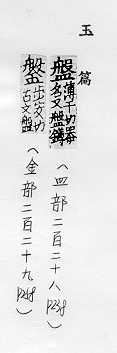 玉篇
盤 薄干切器名又盤
（皿部二百二十八
步安切古文盤
（金部二百二十九